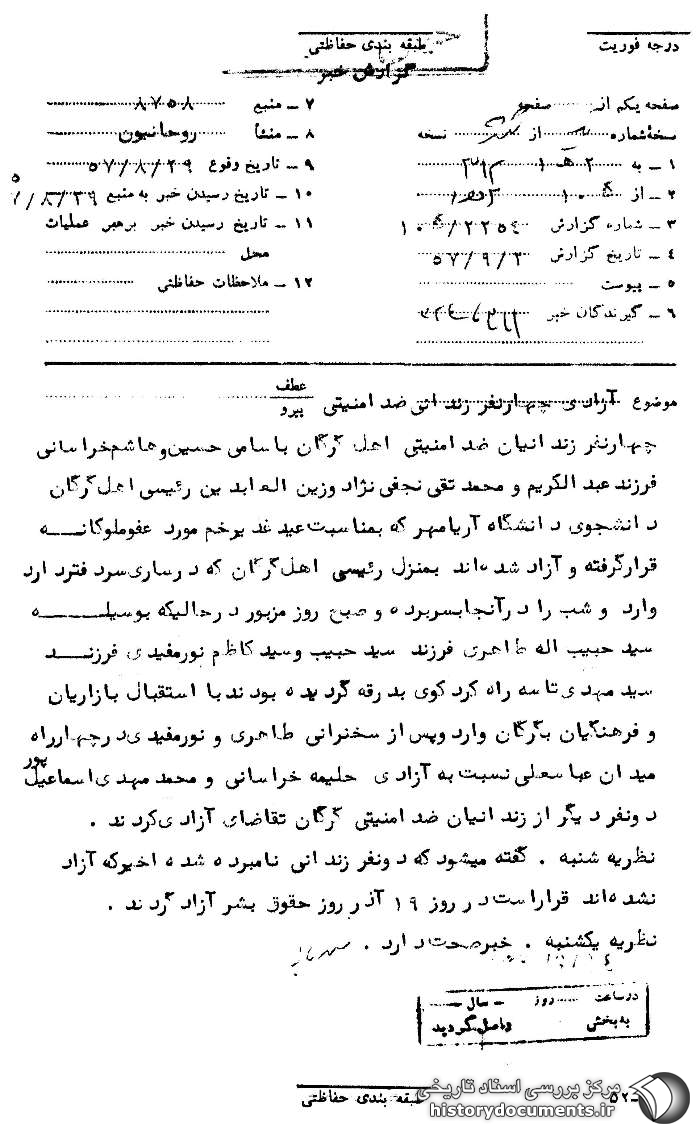 درجه فوریت
طبقه بندی حفاظتی
گزارش خبر
صفحه یکم از صفحه
نسخهٔ شماره از نسخه
۱ ــ به ۳۱۲
۲ ــ از
۳ ــ شماره گزارش ۲۲۵۴/
۴ ــ تاریخ گزارش ۵۷/۹/۲
۵ ــ پیوست
۶ ــ گیرندگان خبر
۷ ــ منبع ۸۷۵۸
۸ ــ منشأ روحانیون
۹ ــ تاریخ وقوع ۵۷/۸/۲۹
۱۰ ــ تاریخ رسیدن خبر به منبع ۵۷/۸/۲۹
۱۱ ــ تاریخ رسیدن خبر برهبر عملیات
محل
۱۲ ــ ملاحظات حفاظتی
موضوع آزادی چهارنفر زندانی ضد امنیتی
عطف
پیرو
چهارنفر زندانیان ضد امنیتی اهل گرگان باسامی حسین و هاشم خراسانی
فرزند عبدالکریم و محمد تقی نجفی نژاد وزین العابدین رئیسی اهل گرگان
دانشجوی دانشگاه آریامهر که بمناسبت عید غدیرخم مورد عفوملوکانه
قرارگرفته و آزاد شده‌اند بمنزل رئیسی اهل گرگان که درساری سرد فتردارد
وارد و شب را درآنجابسربرده و صبح روز مزبور درحالیکه بوسیله
سید حبیب اله طاهری فرزند سید حبیب وسید کاظم نورمفیدی فرزند
سید مهدی تاسه راه کردکوی بدرقه گردیده بودند با استقبال بازاریان
و فرهنگیان بگرگان وارد وپس از سخنرانی طاهری و نورمفیدی درچهارراه
میدان عباسعلی نسبت به آزادی حلیمه خراسانی و محمد مهدی اسماعیل پور
دونفر دیگر از زندانیان ضد امنیتی گرگان تقاضای آزادی کردند .
نظریه شنبه . گفته میشود که دونفر زندانی نامبرده شده اخیرکه آزاد
نشده‌اند قراراست در روز ۱۹ آذر روز حقوق بشر آزاد گردند .
نظریه یکشنبه . خبرصحت دارد .
درساعت روز ــ سال ــ
به بخش واصل گردید
طبقه بندی حفاظتی
۵۲ــ
مرکز بررسی اسناد تاریخی
historydocuments.ir